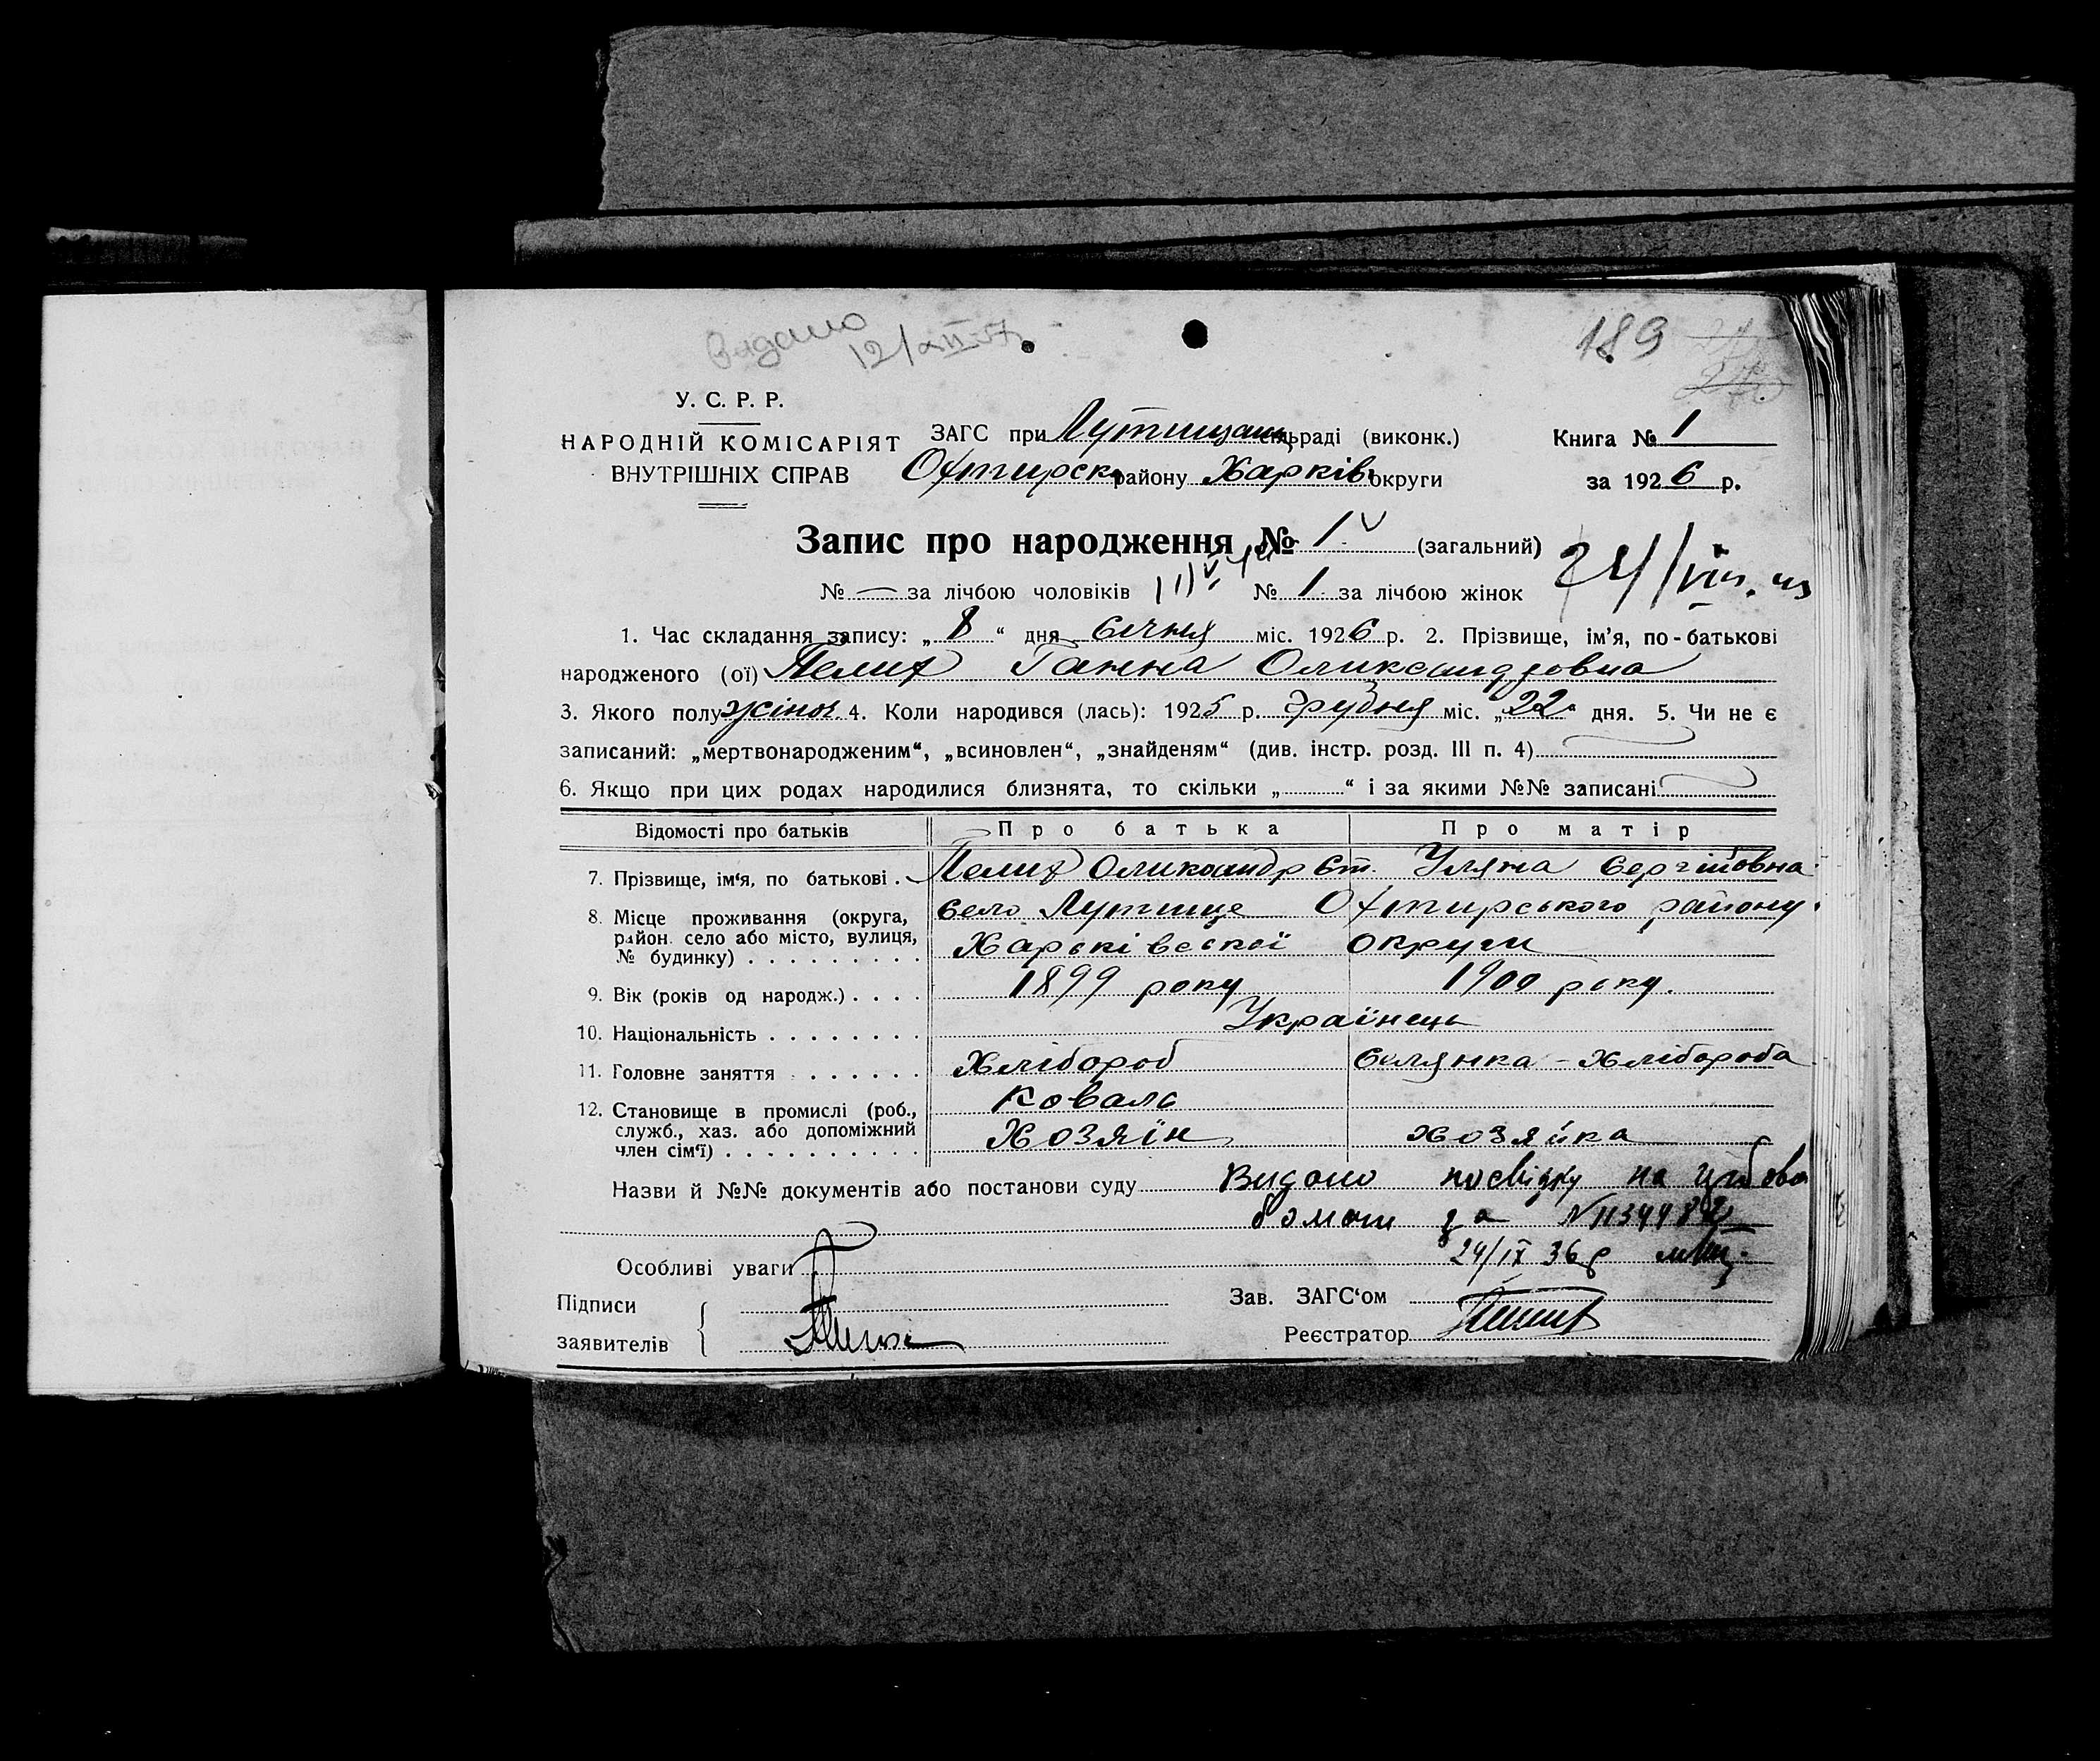 Видано
12/XII 57
189
У. С. Р. Р.
НАРОДНІЙ КОМІСАРІЯТ
ВНУТРІШНІХ СПРАВ
ЗАГС при Лутищанс сільраді (виконк.)
Охтирськ району Харків округи
Книга № 1
за 1926 р.
Запис про народження № 1 (загальний)
№ — за лічбою чоловіків № 1 за лічбою жінок
1. Час складання запису: „ 8 “ дня Січня міс. 1926 р. 2. Прізвище, ім’я, по-батькові
народженого (ої) Пелих Ганна Олександровна
3. Якого полу жіноч. 4. Коли народився (лась): 1925 р. Грудня міс. „22“ дня. 5. Чи не є
записаний: „мертвонародженим“, „всиновлен“, „знайденям“ (див. інстр. розд. III п. 4)
6. Якщо при цих родах народилися близнята, то скільки „ “ і за якими №№ записані
Відомості про батьків Про батька Про матір
7. Прізвище, ім‘я, по батькові . Пелих Олександр Ст. Уляна Сергійовна
8. Місце проживання (округа, село Лутище Охтирського району
район. село або місто, вулиця, Харківської округи
№ будинку) . . . . . . . . .
9. Вік (років од народж.) . . . . 1899 року 1900 року.
10. Національність . . . . . . . . Українець
11. Головне заняття . . . . . . Хлібороб Селянка - Хлібороба
12. Становище в промислі (роб., Коваль
служб., хаз. або допоміжний Хозяїн хозяйка
член сім‘ї) . . . . . . . . . .
Назви й №№ документів або постанови суду Видано посвідку на
за №
24/IX 36 р
Особливі уваги
Підписи
заявителів
Зав. ЗАГС‘ом
Реєстратор